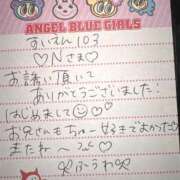 ANGEL BLUE GIRLS
すいせん103
♡Nさま♡
お誘い頂いて
ありがとうございました!
はじめまして
お兄さんもちゅー好きでよかった
またね〜
ふうわ